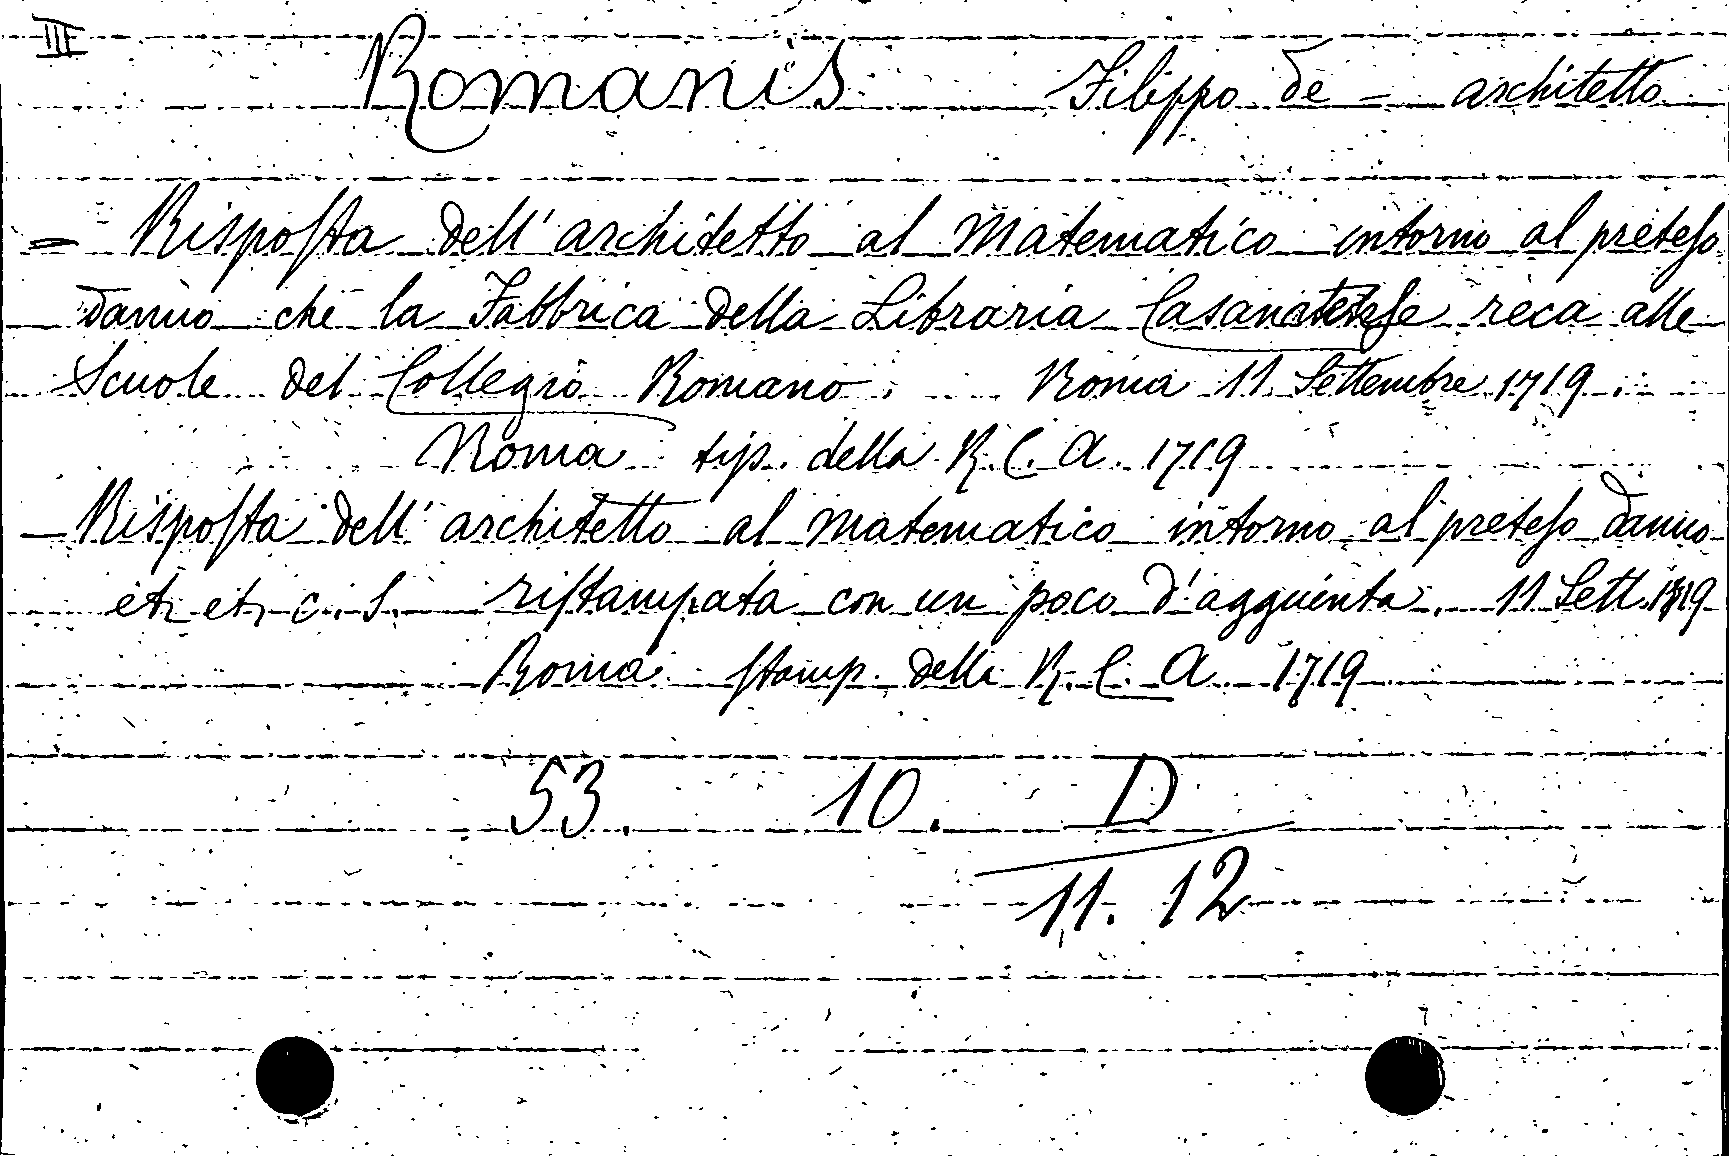 III
Romanis Filippo de – architetto
= Risposta dell'architetto al Matematico intorno al preteso
danno che la Fabbrica della Libraria Casanatese reca alle
Scuole del Collegio Romano. Roma 11 Settembre 1719.
Roma tip. della R. C. A. 1719
– Risposta dell'architetto al matematico intorno al preteso danno
etc etc c. s. ristampata con un poco d'agguinta. 11 Sett. 1719
Roma stamp. della R. C. A. 1719
53. 10. D
11. 12